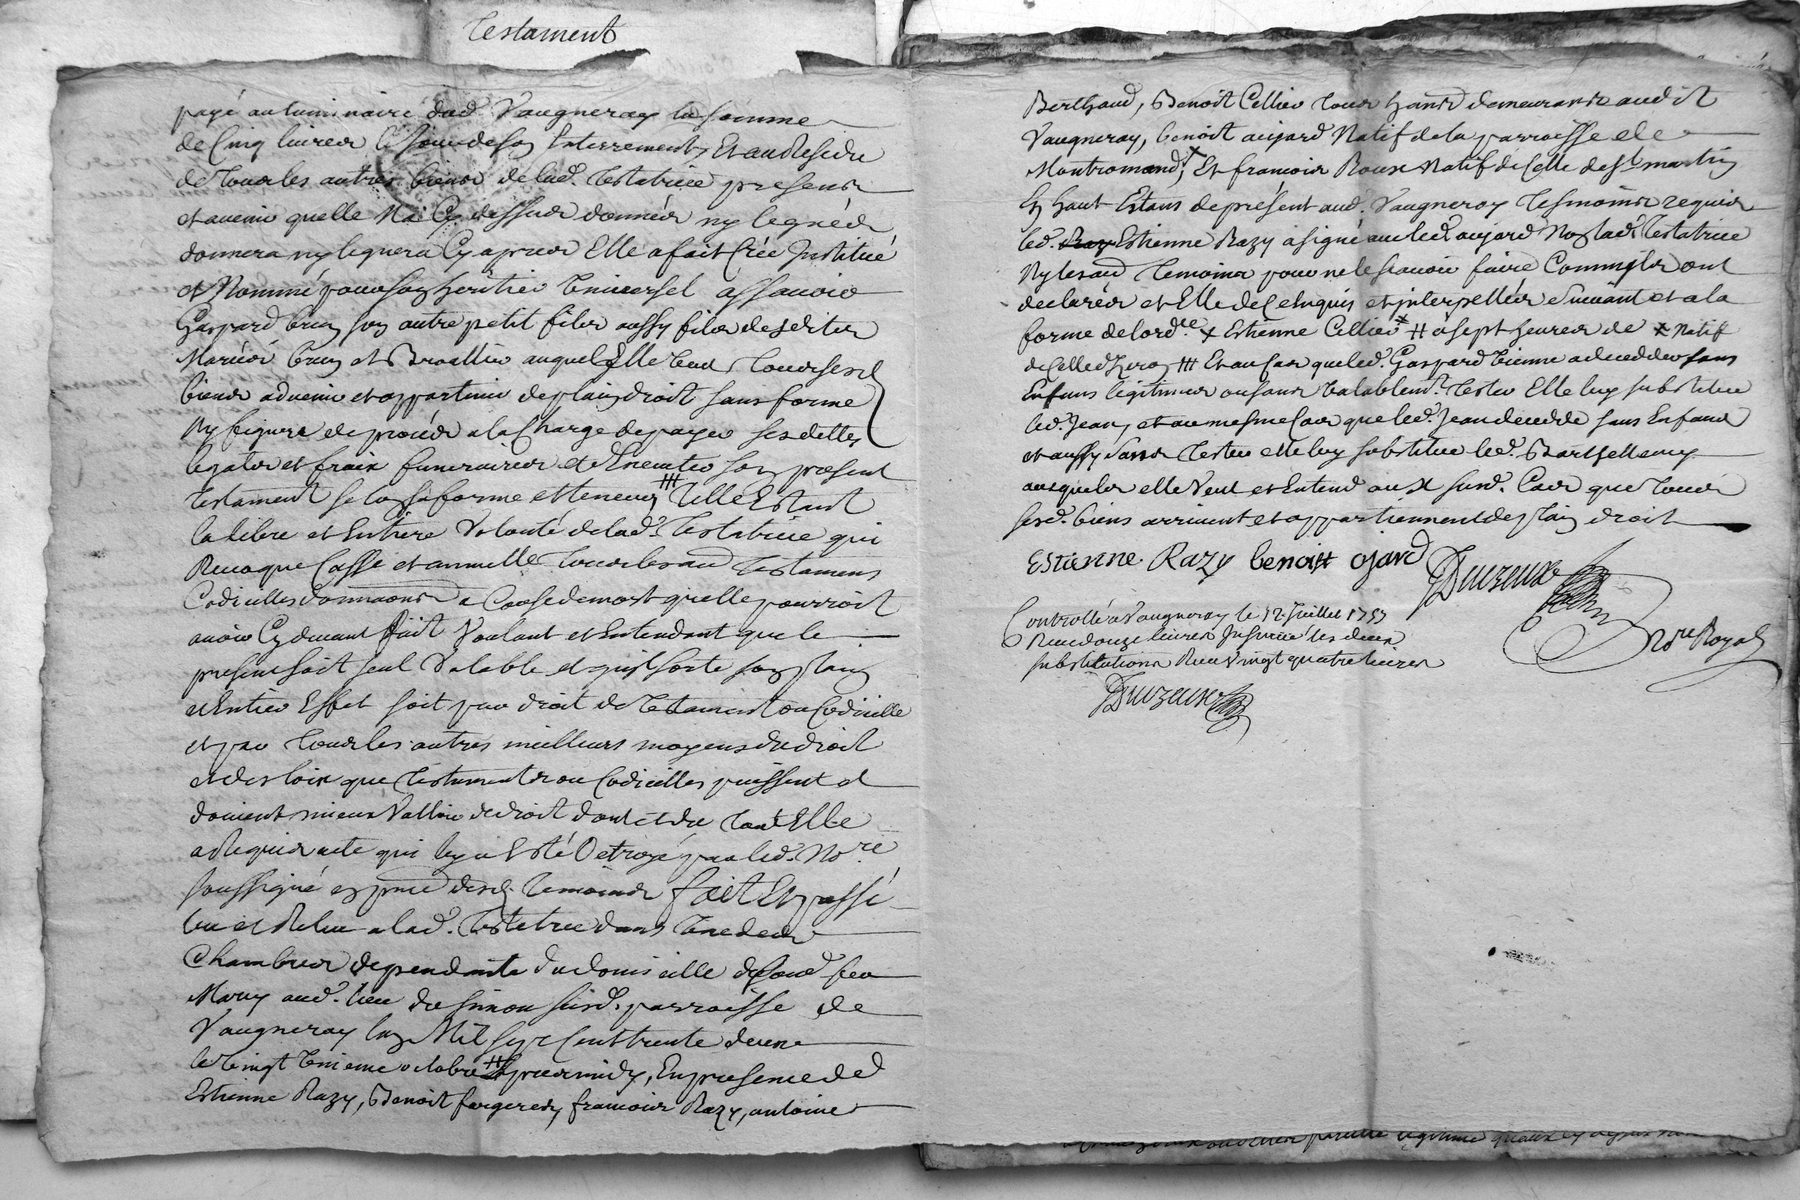 Testament
payé au luminaire dud. Vaugneray la somme
de Cinq livres le jour de son Enterrement, Et au Residu
de tous les autres biens de lad. Testatrice presens
et avenir quelle Na Cy dessus donnés ny legués
donnera ny leguera Cy apres Elle a fait Créé Institué
et Nommé pour son heritier universel assavoir
Gaspard brun son autre petit fils aussy fils desditer
Mariés brun et Broallier auquel Elle veut tous sesd.
biens advenir et appartenir de plain droit sans forme
Ny figure de procés a la Charge de payer ses dettes
legats et fraix funeraires et d'Executer son present
testament selon sa forme et teneur ⧻ Telle Estant
la libre et Entiere Volonté de lad. Testatrice qui
Revoque Casse et annulle tous les aud. Testamens
Codicilles donnaons a Cause de mort quelle pourroit
avoir Cy devant fait Voulant et Entendant que le
present soit seul Valable et qu'il sorte son plain
et Entier Effet soit par droit de Testament ou Codicille
et par tous les autres meilleurs moyens du droit
et des loix que Testaments ou Codicilles puissent et
doivent mieux Valloir de droit dont et du tout Elle
a Requis acte qui luy a Esté Octroyé par led. Nore.
soussigné en pnce desd. temoins fait Et passé
leu et Releu a lad. Testatrice dans Une des
Chambres dependante du domicille de feu
Mary aud. lieu du simon susd. parroisse de
Vaugneray lan Mil sept Cent trente deux
le vingt unieme octobre ⧺ apres midy, En presence de
Estienne Razy, Benoit fargeres, francois Razy, antoine
Berthaud, Benoit Cellier tous hants demeurants audit
Vaugneray, benoit aujard Natif de la parroisse de
Montromand, Et francois Roux Natif de Celle de St martin
En haut Estans de présent aud. Vaugneray tesmoins requis
led. Estienne Razy a signé avec led. aujard Non lad. Testatrice
Ny les aud. temoins pour ne le scavoir faire Comm'ils ont
declarés et Elle de Ce Enquis et interpellés Suivant et a la
forme de lord.ce + Estienne Cellier ⧺ a sept heures de + Natif
de Celle d'Yzeron ⧻ Et au Cas que led. Gaspard vienne a deceder sans
Enfans legitimes ou sans valablemt. tester Elle luy substitue
led. Jean, et au mesme Cas que led. Jean decede sans Enfans
et aussy sans tester elle luy substitue led. Barthellemy
ausquels elle Veut et Entend aux susd. Cas que tous
sesd. biens arrivent et appartiennent de plain droit
Estienne Razy benoitt ojard
Duvzeux
nore Royal
Controllé a Vaugneray le 12 Juillet 1757
Receu douze livres Insinué les deux
substitutions Receu Vingt quatre livres
Duvzeux